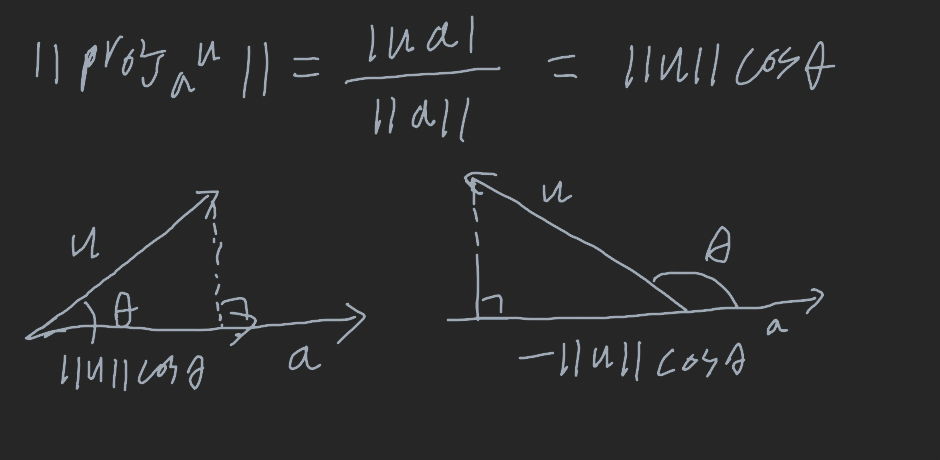 ||proj_a u|| = |u a| / ||a|| = ||u|| cosθ
u
θ
a
||u|| cosθ
u
θ
a
-||u|| cosθ